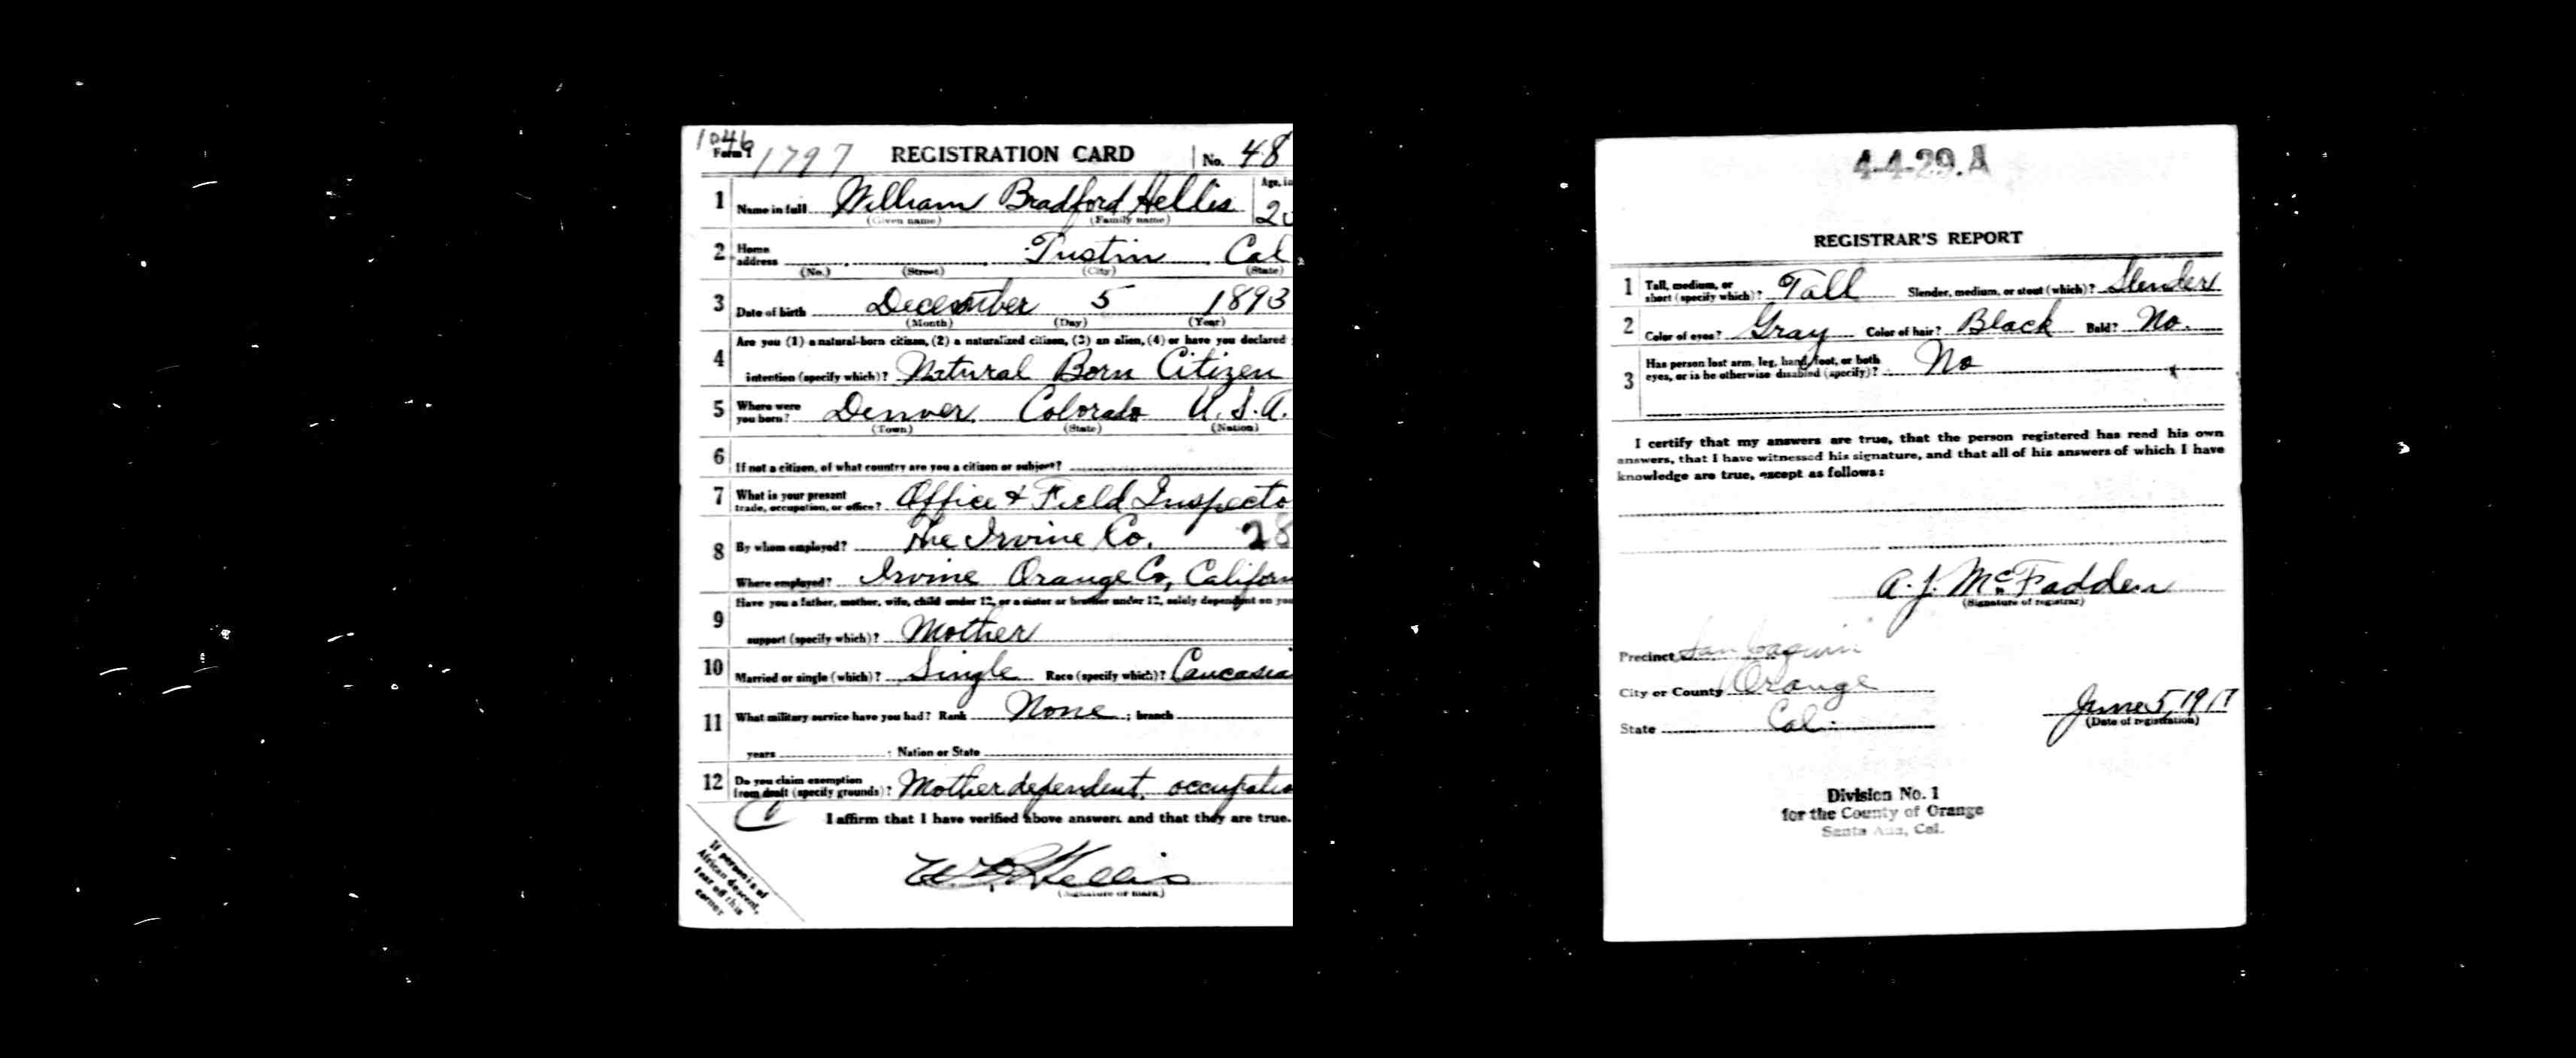 1046
Form 1 1797 REGISTRATION CARD No. 48
1 Name in full William Bradford Hellis Age, in
(Given name) (Family name)
2 Home address Tustin Cal
(No.) (Street) (City) (State)
3 Date of birth December 5 1893
(Month) (Day) (Year)
4 Are you (1) a natural-born citizen, (2) a naturalized citizen, (3) an alien, (4) or have you declared
intention (specify which)? Natural Born Citizen
5 Where were you born? Denver, Colorado U.S.A.
(Town) (State) (Nation)
6 If not a citizen, of what country are you a citizen or subject?
7 What is your present trade, occupation, or office? Office & Field Inspecto
8 By whom employed? The Irvine Co. 28
Where employed? Irvine Orange Co, Californ
9 Have you a father, mother, wife, child under 12, or a sister or brother under 12, solely dependent on you
support (specify which)? Mother
10 Married or single (which)? Single Race (specify which)? Caucasia
11 What military service have you had? Rank None ; branch
years ; Nation or State
12 Do you claim exemption from draft (specify grounds)? Mother dependent, occupatio
I affirm that I have verified above answers and that they are true.
W B Hellis
(Signature or mark)
If person is of
African descent,
tear off this
corner
4-4-29. A
REGISTRAR'S REPORT
1 Tall, medium, or short (specify which)? Tall Slender, medium, or stout (which)? Slender
2 Color of eyes? Gray Color of hair? Black Bald? No.
3 Has person lost arm, leg, hand, foot, or both eyes, or is he otherwise disabled (specify)? No
I certify that my answers are true, that the person registered has read his own
answers, that I have witnessed his signature, and that all of his answers of which I have
knowledge are true, except as follows:
A. J. McFadden
(Signature of registrar)
Precinct San Joaquin
City or County Orange
State Cal.
June 5, 1917
(Date of registration)
Division No. 1
for the County of Orange
Santa Ana, Cal.